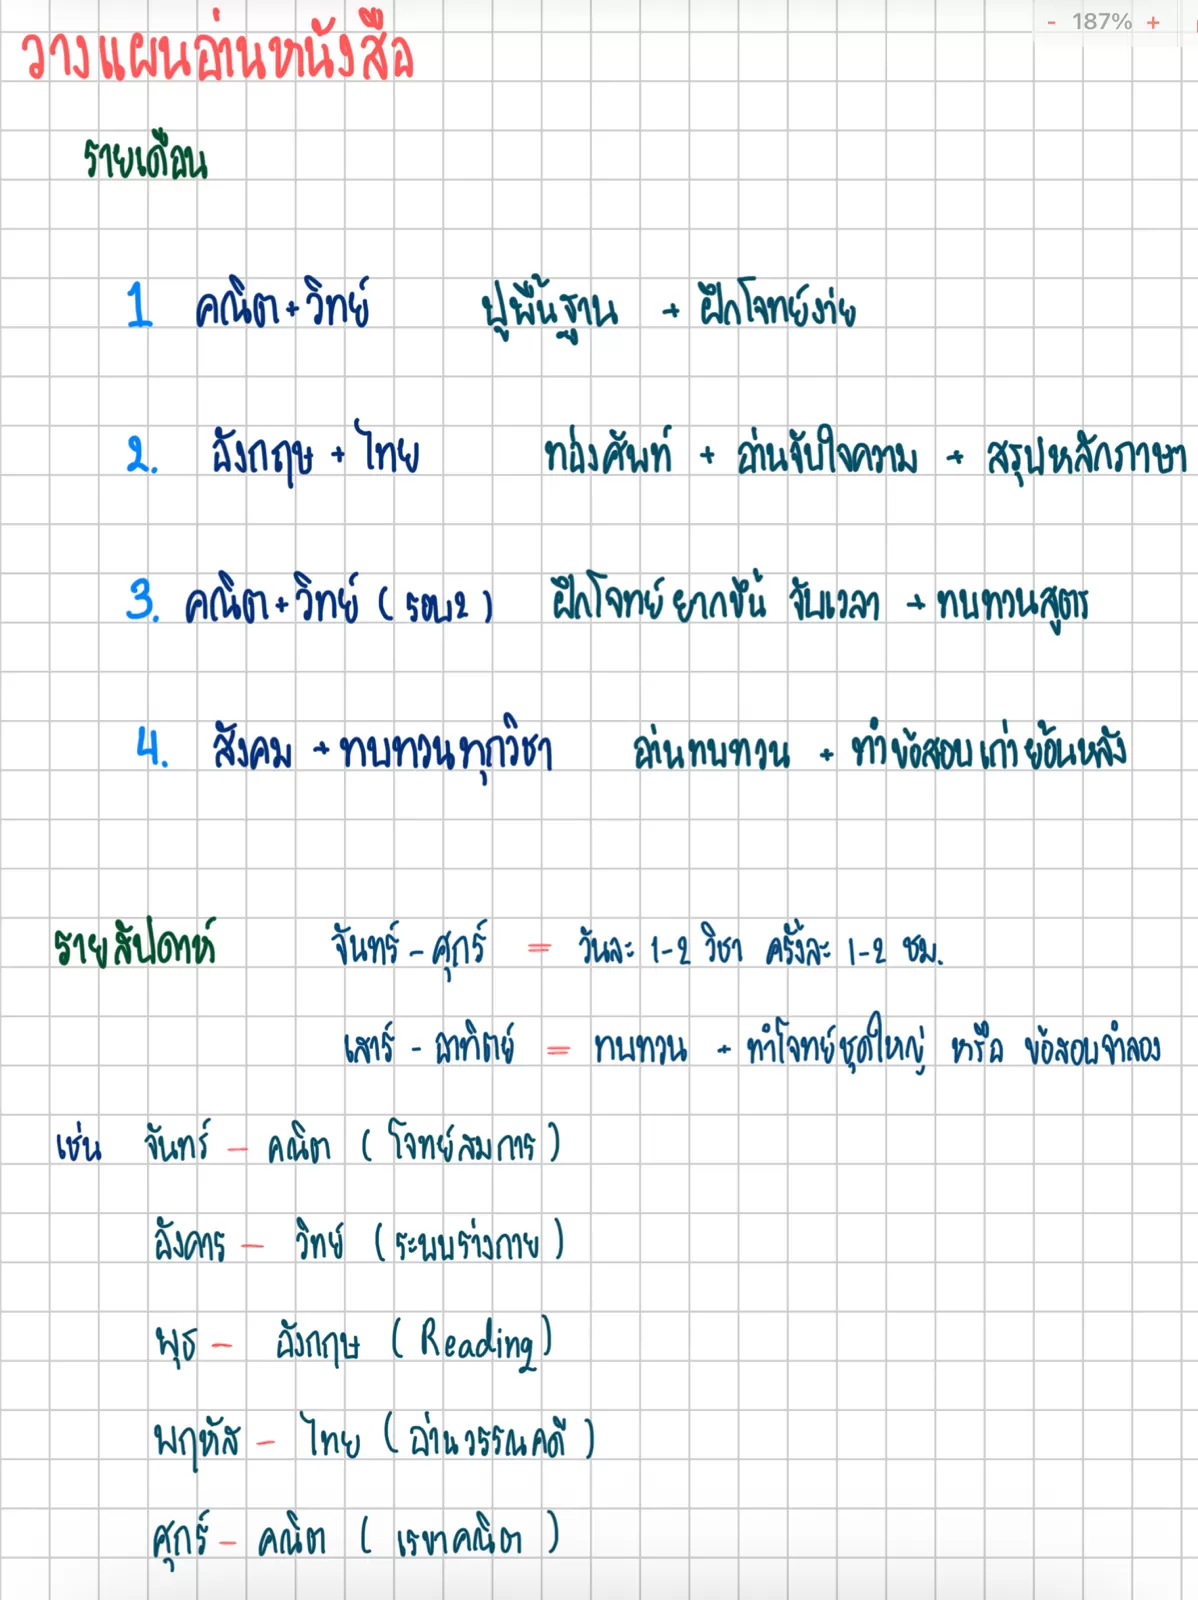 - 187% +
วางแผนอ่านหนังสือ
รายเดือน
1 คณิต + วิทย์ ปูพื้นฐาน + ฝึกโจทย์ง่าย
2. อังกฤษ + ไทย ท่องศัพท์ + อ่านจับใจความ + สรุปหลักภาษา
3. คณิต + วิทย์ ( รอบ2 ) ฝึกโจทย์ยากขึ้น จับเวลา + ทบทวนสูตร
4. สังคม + ทบทวนทุกวิชา อ่านทบทวน + ทำข้อสอบเก่าย้อนหลัง
รายสัปดาห์ จันทร์ - ศุกร์ = วันละ 1-2 วิชา ครั้งละ 1-2 ชม.
เสาร์ - อาทิตย์ = ทบทวน + ทำโจทย์ชุดใหญ่ หรือ ข้อสอบจำลอง
เช่น จันทร์ - คณิต ( โจทย์สมการ )
อังคาร - วิทย์ ( ระบบร่างกาย )
พุธ - อังกฤษ ( Reading )
พฤหัส - ไทย ( อ่านวรรณคดี )
ศุกร์ - คณิต ( เรขาคณิต )